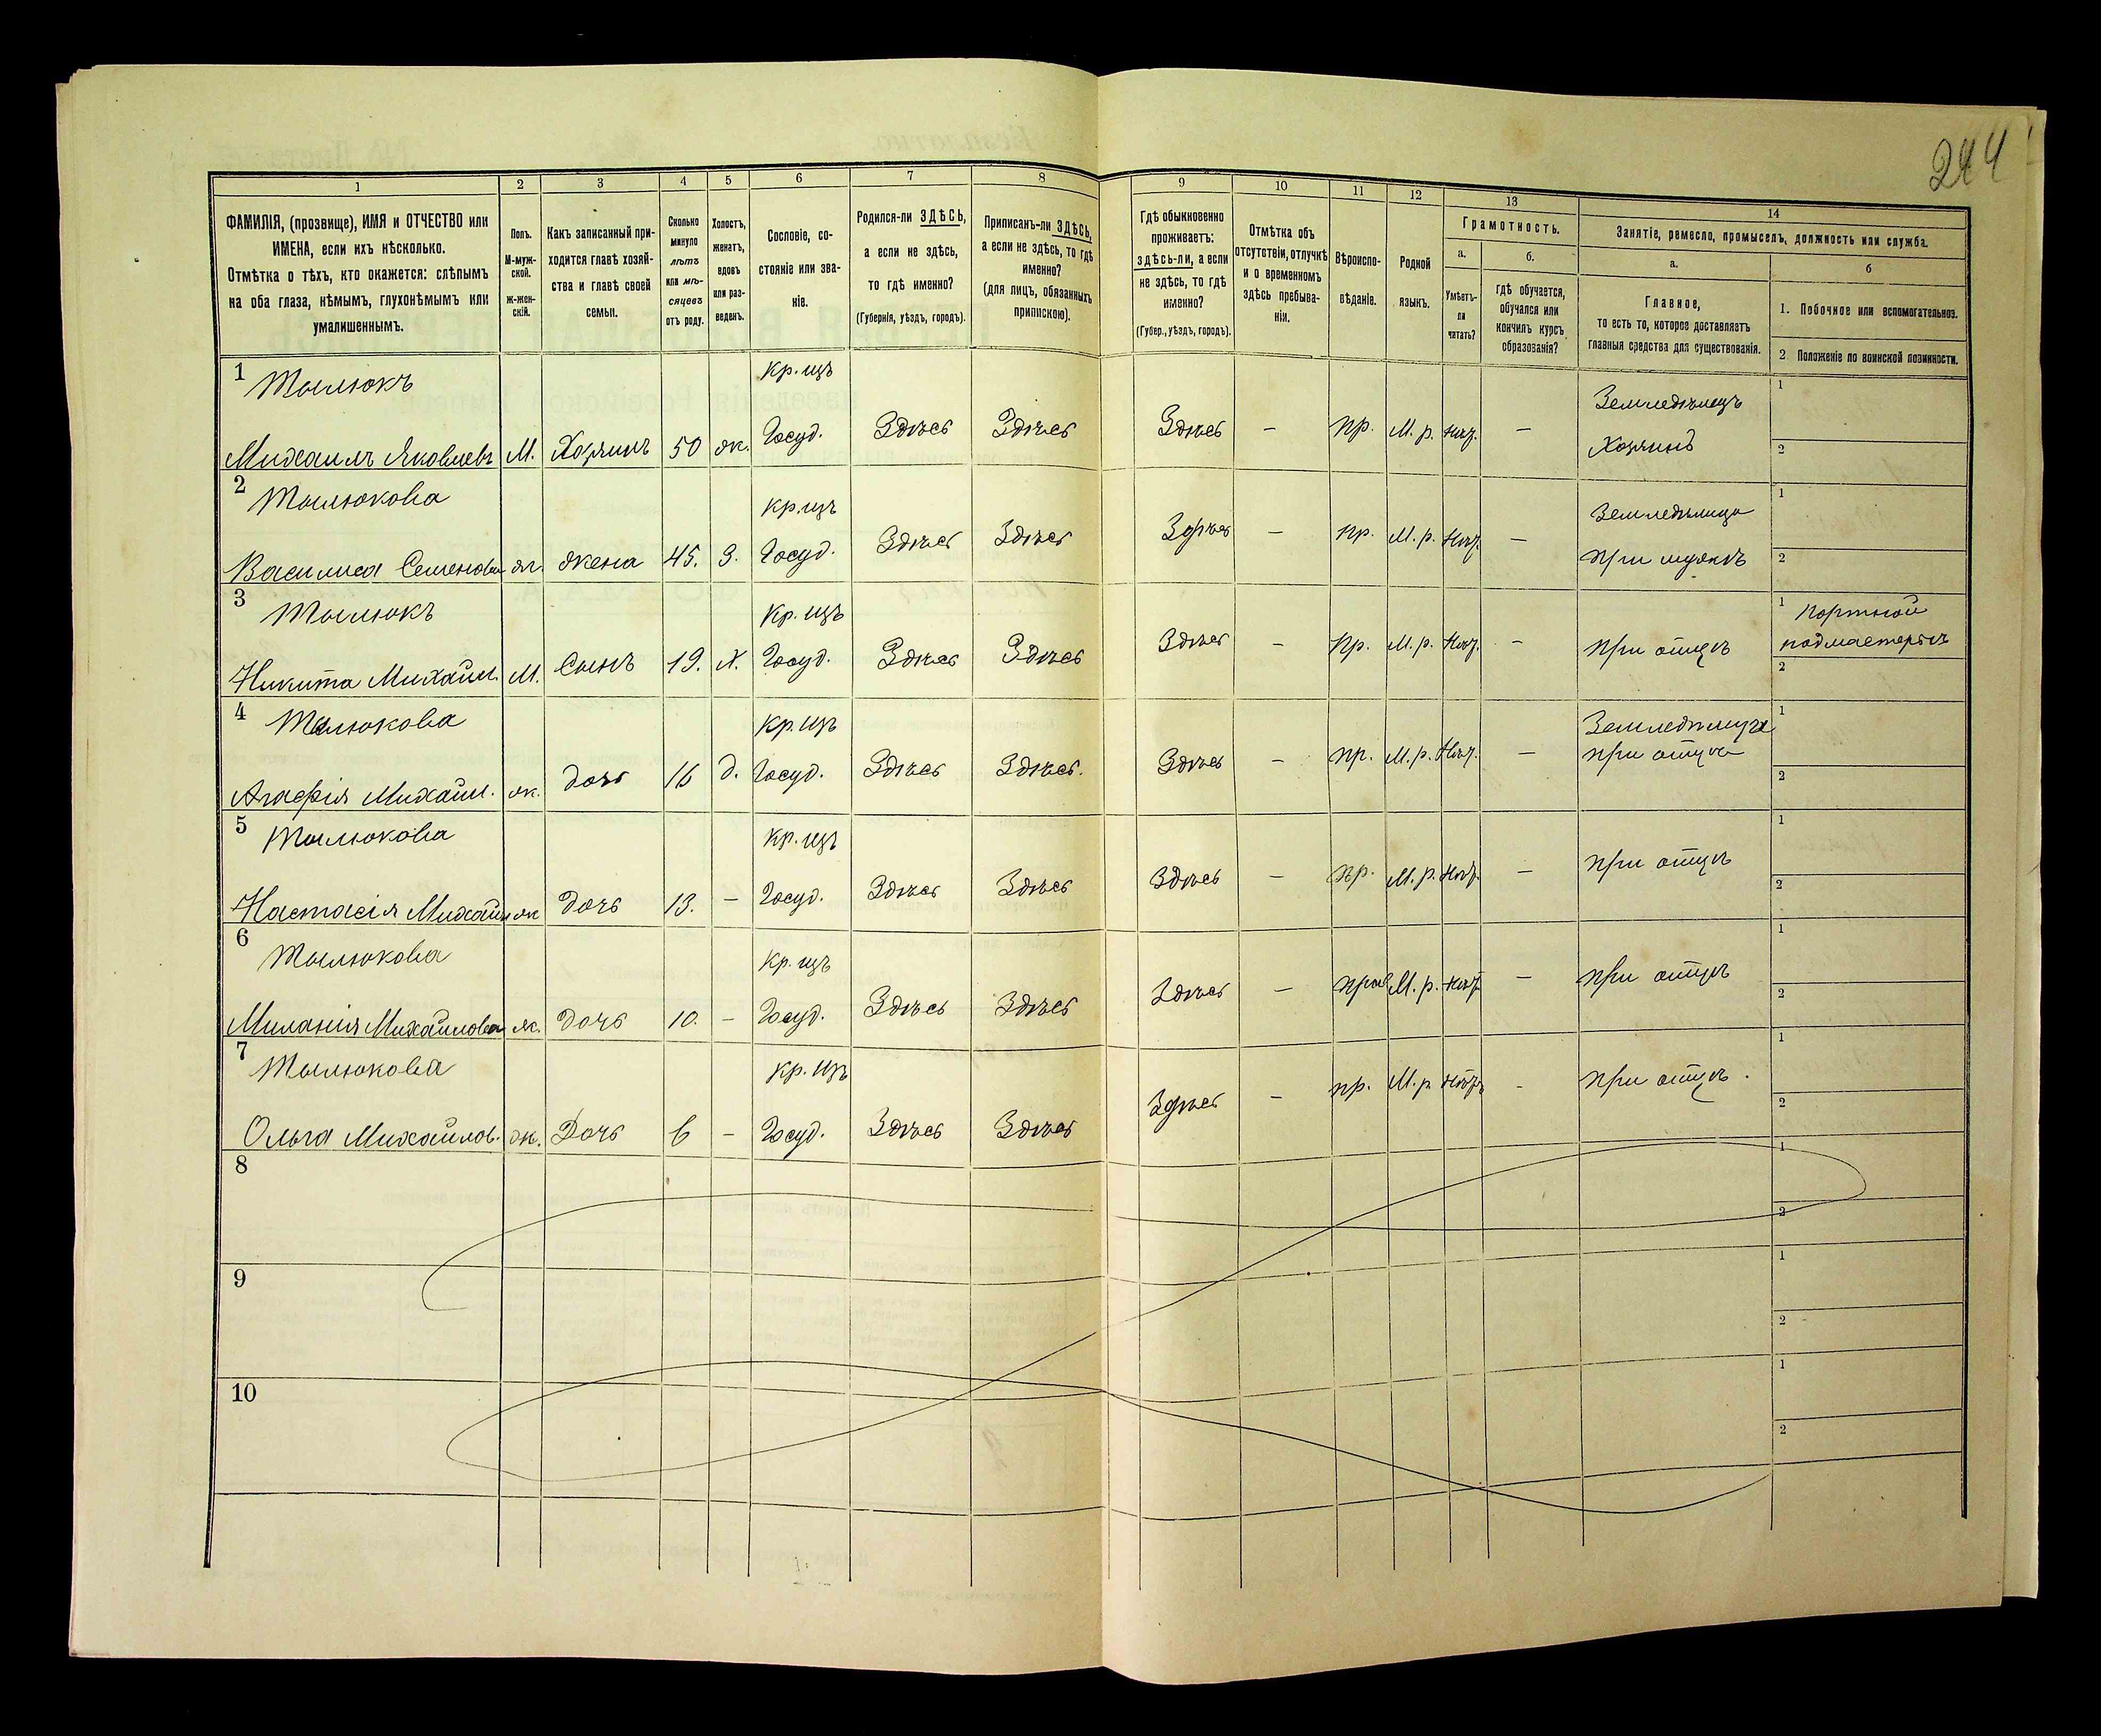 244
1 2 3 4 5 6 7 8 9 10 11 12 13 14
ФАМИЛІЯ, (прозвище), ИМЯ и ОТЧЕСТВО или
ИМЕНА, если ихъ нѣсколько.
Отмѣтка о тѣхъ, кто окажется: слѣпымъ
на оба глаза, нѣмымъ, глухонѣмымъ или
умалишеннымъ.
Полъ.
М-муж-
ской.
Ж-жен-
скій.
Какъ записанный при-
ходится главѣ хозяй-
ства и главѣ своей
семьи.
Сколько
минуло
лѣтъ
или мѣ-
сяцевъ
отъ роду.
Холостъ,
женатъ,
вдовъ
или раз-
веденъ.
Сословіе, со-
стояніе или зва-
ніе.
Родился-ли ЗДѢСЬ,
а если не здѣсь,
то гдѣ именно?
(Губернія, уѣздъ, городъ).
Приписанъ-ли ЗДѢСЬ,
а если не здѣсь, то гдѣ
именно?
(для лицъ, обязанныхъ
припискою).
Гдѣ обыкновенно
проживаетъ:
здѣсь-ли, а если
не здѣсь, то гдѣ
именно?
(Губер., уѣздъ, городъ).
Отмѣтка объ
отсутствіи, отлучкѣ
и о временномъ
здѣсь пребыва-
ніи.
Вѣроиспо-
вѣданіе.
Родной
языкъ.
Грамотность.
а.
Умѣетъ-
ли
читать?
б.
гдѣ обучается,
обучался или
кончилъ курсъ
образованія?
Занятіе, ремесло, промыселъ, должность или служба.
а.
Главное,
то есть то, которое доставляетъ
главныя средства для существованія.
б
1. Побочное или вспомогательное.
2 Положеніе по воинской повинности.
1 Тылюкъ кр. цъ Земледѣлецъ 1
Михаилъ Яковлевъ М. Хозяинъ 50 ж. Госуд. Здѣсь Здѣсь Здѣсь – пр. М. р. нѣт. – Хозяинъ 2
2 Тылюкова кр. цъ Земледѣлица 1
Василиса Семенова ж. жена 45. З. Госуд. Здѣсь Здѣсь Здѣсь – пр. М. р. нѣт. – при мужѣ 2
3 Тылюкъ кр. цъ 1 портной
Никита Михайл. М. Сынъ 19. Х. Госуд. Здѣсь Здѣсь Здѣсь – пр. М. р. нѣт. – при отцѣ подмастерье 2
4 Тылюкова кр. цъ Земледѣлица 1
Агафія Михайл. ж. дочь 16 д. Госуд. Здѣсь Здѣсь. Здѣсь – пр. М. р. нѣт. – при отцѣ 2
5 Тылюкова кр. цъ 1
Настасія Михайл ж Дочь 13. – Госуд. Здѣсь Здѣсь Здѣсь – пр. М. р. нѣт. – при отцѣ 2
6 Тылюкова кр. цъ 1
Миланія Михайлова ж. Дочь 10. – Госуд. Здѣсь Здѣсь Здѣсь – прав М. р. нѣт – при отцѣ 2
7 Тылюкова кр. цъ 1
Ольга Михайлов. ж. Дочь 6 – Госуд. Здѣсь Здѣсь Здѣсь – пр. М. р нѣтъ - при отцѣ. 2
8 1
2
9 1
2
10 1
2